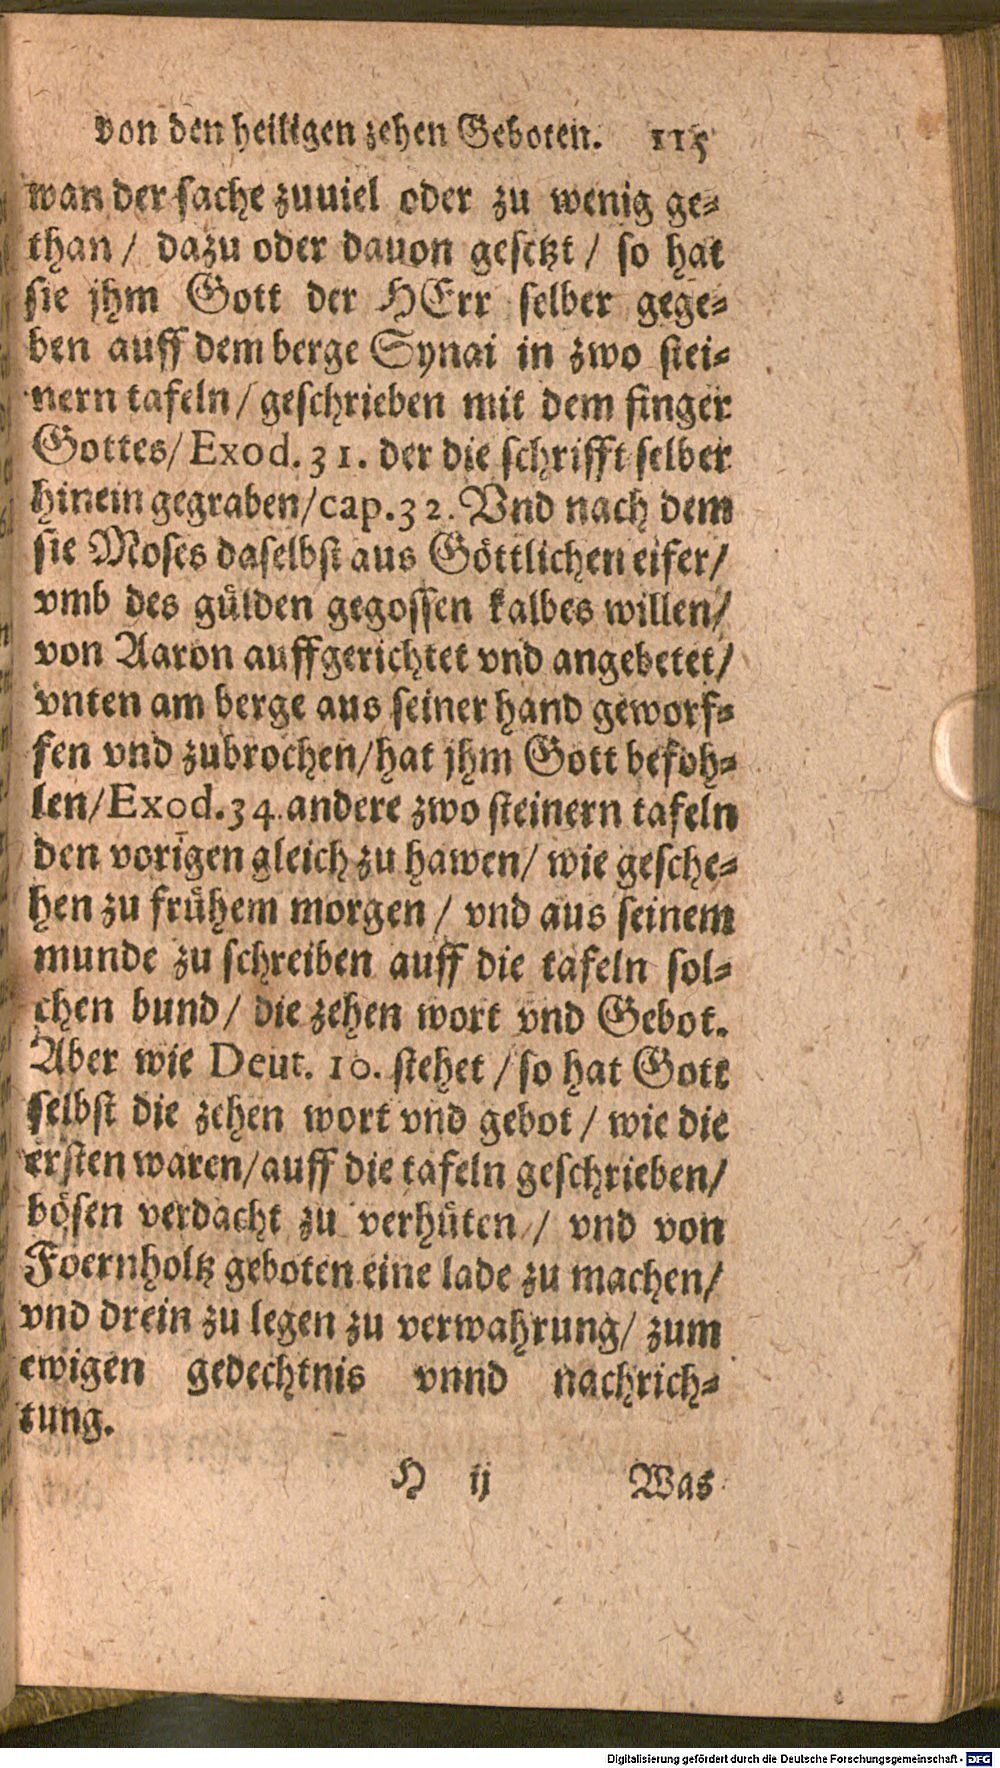 von den heiligen zehen Geboten. 115
wan der sache zuuiel oder zu wenig ge-
than / dazu oder dauon gesetzt / so hat
sie jhm Gott der HErr selber gege-
ben auff dem berge Synai in zwo stei-
nern tafeln / geschrieben mit dem finger
Gottes / Exod. 31. der die schrifft selber
hinein gegraben / cap. 32. Vnd nach dem
sie Moses daselbst aus Göttlichen eifer /
vmb des gülden gegossen kalbes willen /
von Aaron auffgerichtet vnd angebetet /
vnten am berge aus seiner hand geworf-
fen vnd zubrochen / hat jhm Gott befoh-
len / Exod. 34. andere zwo steinern tafeln
den vorigen gleich zu hawen / wie gesche-
hen zu frühem morgen / vnd aus seinem
munde zu schreiben auff die tafeln sol-
chen bund / die zehen wort vnd Gebot.
Aber wie Deut. 10. stehet / so hat Gott
selbst die zehen wort vnd gebot / wie die
ersten waren / auff die tafeln geschrieben /
bösen verdacht zu verhüten / vnd von
Foernholtz geboten eine lade zu machen /
vnd drein zu legen zu verwahrung / zum
ewigen gedechtnis vnnd nachrich-
tung.
H ij Was
Digitalisierung gefördert durch die Deutsche Forschungsgemeinschaft - DFG